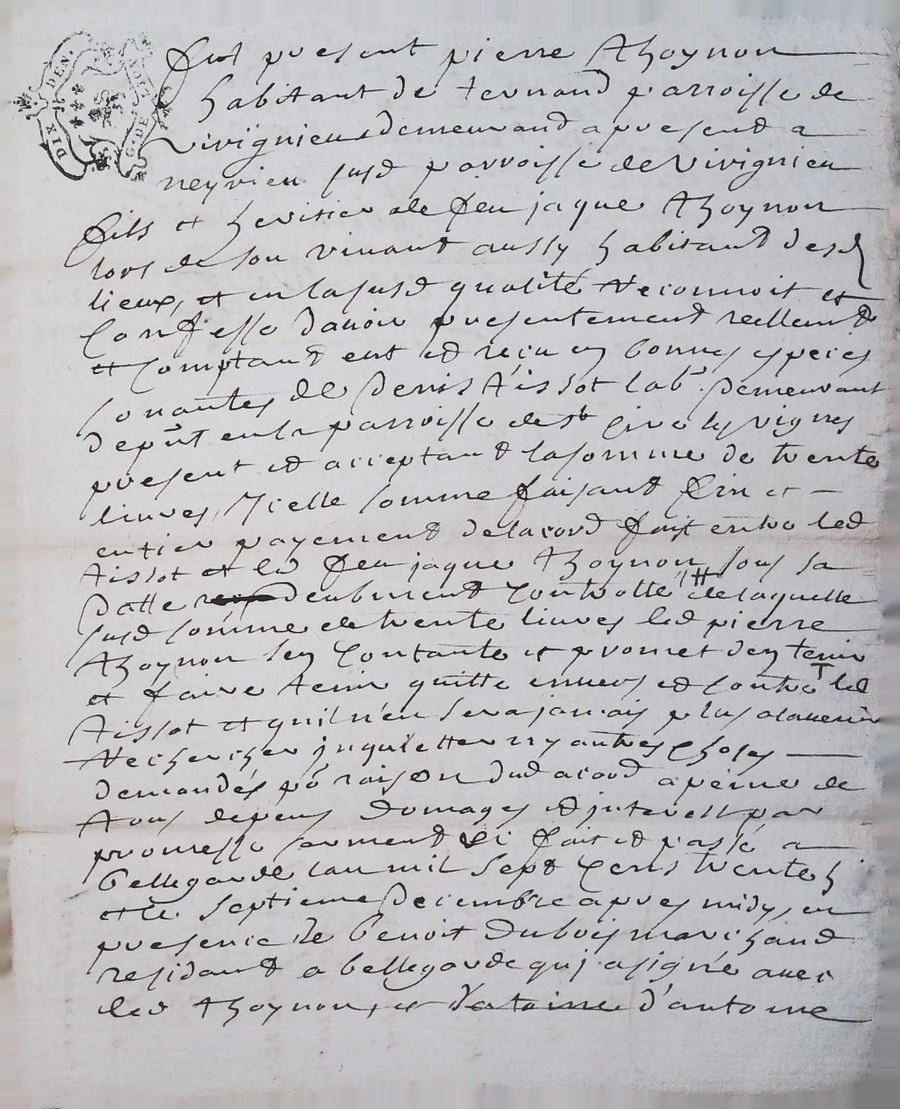 DIX DEN. G. DE
fut present pierre Thoynon
habitant de ternand parroisse de
virignieu demeurand apresend a
neyrieu susd parroisse de virignieu
fils et heritier de feu jaque Thoynon
lors de son vivant aussy habitant desd
lieux, et en lasusd qualité Reconnoit et
Confesse davoir presentement reellemt
et Comptand eut et reçu en bonnes especes
sonantes de Denis Tissot labr. Demeurant
depñt en la parroisse de st les vignes
present et acceptand lasomme de trente
livres, Icelle somme faisand fin et
entier payement delacord fait entre led
Tissot et led feu jaque Thoynon sous sa
datte deubment Controllé de laquelle
susd somme de trente livres led pierre
Thoynon sen Contante et promet den tenir
et faire tenir quitte envers et Contre led
Tissot et quil n'en sera jamais plus alavenir
Rechercher inquietter ny autres choses
demandés pr raison dud acord a peine de
Tous depens Domages et interest par
promesse serment fait et passé a
bellegarde lan mil sept Cens trente
et le septieme Decembre apres midy, en
presence de Benoit Dubois marchand
residand a bellegarde qui asigné avec
led Thoynon, et d'antoine